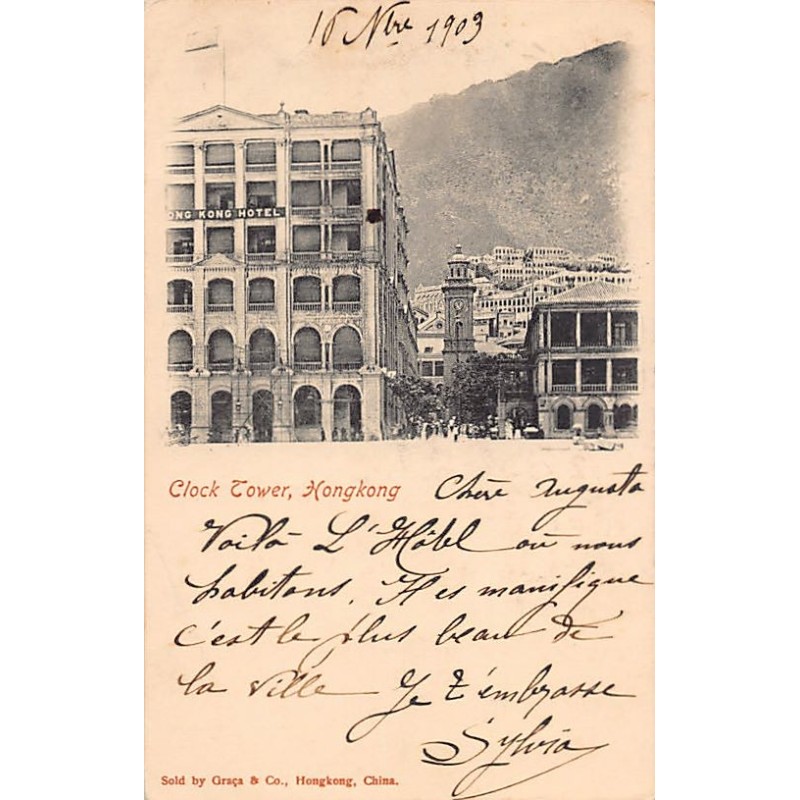 16 Nbre 1903
ONG KONG HOTEL
Clock Tower, Hongkong
Chère Augusta
Voilà L'Hôtel où nous
habitons. Il es manifique
c'est le plus beau de
la ville Je t'embrasse
Sylvia
Sold by Graça & Co., Hongkong, China.